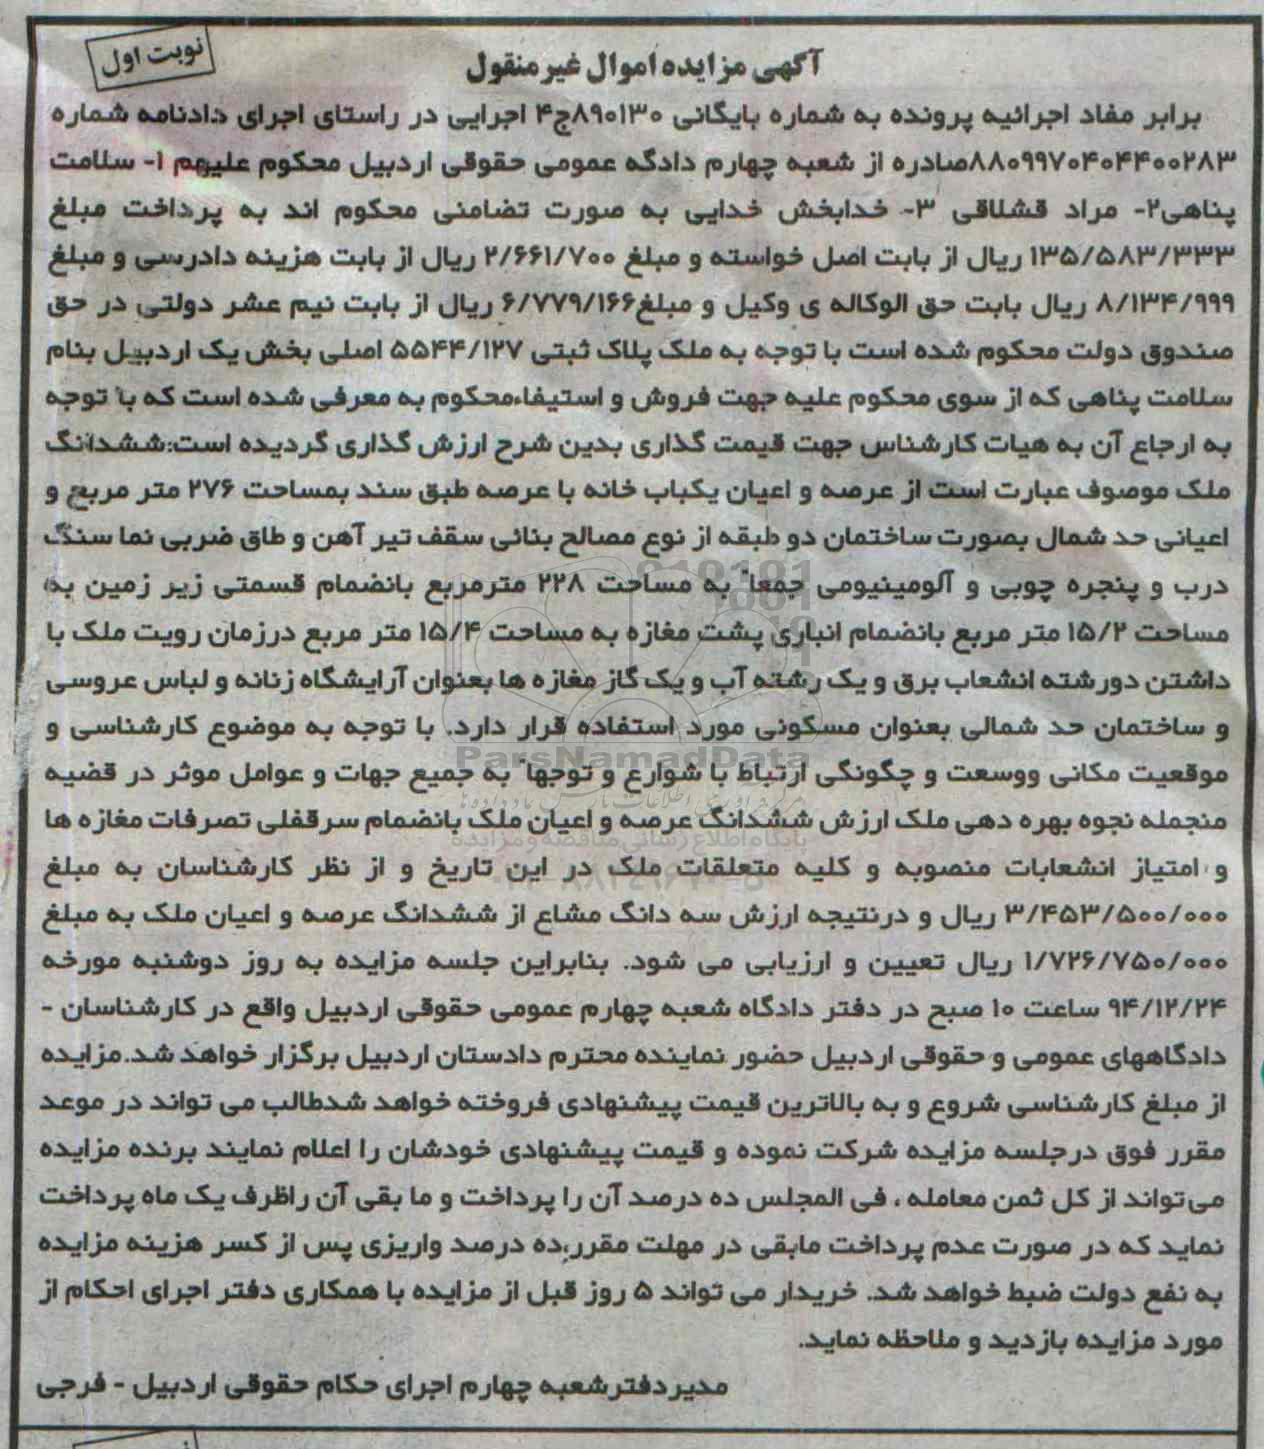 نوبت اول
آگهی مزایده اموال غیرمنقول
برابر مفاد اجرائیه پرونده به شماره بایگانی ۸۹۰۱۳۰ج۴ اجرایی در راستای اجرای دادنامه شماره
۸۸۰۹۹۷۰۴۰۴۴۰۰۲۸۳صادره از شعبه چهارم دادگه عمومی حقوقی اردبیل محکوم علیهم ۱- سلامت
پناهی۲- مراد قشلاقی ۳- خدابخش خدایی به صورت تضامنی محکوم اند به پرداخت مبلغ
۱۳۵/۵۸۳/۳۳۳ ریال از بابت اصل خواسته و مبلغ ۲/۶۶۱/۷۰۰ ریال از بابت هزینه دادرسی و مبلغ
۸/۱۳۴/۹۹۹ ریال بابت حق الوکاله ی وکیل و مبلغ۶/۷۷۹/۱۶۶ ریال از بابت نیم عشر دولتی در حق
صندوق دولت محکوم شده است با توجه به ملک پلاک ثبتی ۵۵۴۴/۱۲۷ اصلی بخش یک اردبیل بنام
سلامت پناهی که از سوی محکوم علیه جهت فروش و استیفاءمحکوم به معرفی شده است که با توجه
به ارجاع آن به هیات کارشناس جهت قیمت گذاری بدین شرح ارزش گذاری گردیده است:ششدانگ
ملک موصوف عبارت است از عرصه و اعیان یکباب خانه با عرصه طبق سند بمساحت ۲۷۶ متر مربع و
اعیانی حد شمال بصورت ساختمان دو طبقه از نوع مصالح بنائی سقف تیر آهن و طاق ضربی نما سنگ
درب و پنجره چوبی و آلومینیومی جمعا" به مساحت ۲۲۸ مترمربع بانضمام قسمتی زیر زمین به
مساحت ۱۵/۲ متر مربع بانضمام انباری پشت مغازه به مساحت ۱۵/۴ متر مربع درزمان رویت ملک با
داشتن دورشته انشعاب برق و یک رشته آب و یک گاز مغازه ها بعنوان آرایشگاه زنانه و لباس عروسی
و ساختمان حد شمالی بعنوان مسکونی مورد استفاده قرار دارد. با توجه به موضوع کارشناسی و
ParsNamadData
موقعیت مکانی ووسعت و چگونگی ارتباط با شوارع و توجها" به جمیع جهات و عوامل موثر در قضیه
منجمله نجوه بهره دهی ملک ارزش ششدانگ عرصه و اعیان ملک بانضمام سرقفلی تصرفات مغازه ها
پایگاه اطلاع رسانی مناقصه و مزایده
و امتیاز انشعابات منصوبه و کلیه متعلقات ملک در این تاریخ و از نظر کارشناسان به مبلغ
۳/۴۵۳/۵۰۰/۰۰۰ ریال و درنتیجه ارزش سه دانگ مشاع از ششدانگ عرصه و اعیان ملک به مبلغ
۱/۷۲۶/۷۵۰/۰۰۰ ریال تعیین و ارزیابی می شود. بنابراین جلسه مزایده به روز دوشنبه مورخه
۹۴/۱۲/۲۴ ساعت ۱۰ صبح در دفتر دادگاه شعبه چهارم عمومی حقوقی اردبیل واقع در کارشناسان -
دادگاههای عمومی و حقوقی اردبیل حضور نماینده محترم دادستان اردبیل برگزار خواهد شد.مزایده
از مبلغ کارشناسی شروع و به بالاترین قیمت پیشنهادی فروخته خواهد شدطالب می تواند در موعد
مقرر فوق درجلسه مزایده شرکت نموده و قیمت پیشنهادی خودشان را اعلام نمایند برنده مزایده
می‌تواند از کل ثمن معامله ، فی المجلس ده درصد آن را پرداخت و ما بقی آن راظرف یک ماه پرداخت
نماید که در صورت عدم پرداخت مابقی در مهلت مقرر،ده درصد واریزی پس از کسر هزینه مزایده
به نفع دولت ضبط خواهد شد. خریدار می تواند ۵ روز قبل از مزایده با همکاری دفتر اجرای احکام از
مورد مزایده بازدید و ملاحظه نماید.
مدیردفترشعبه چهارم اجرای حکام حقوقی اردبیل - فرجی